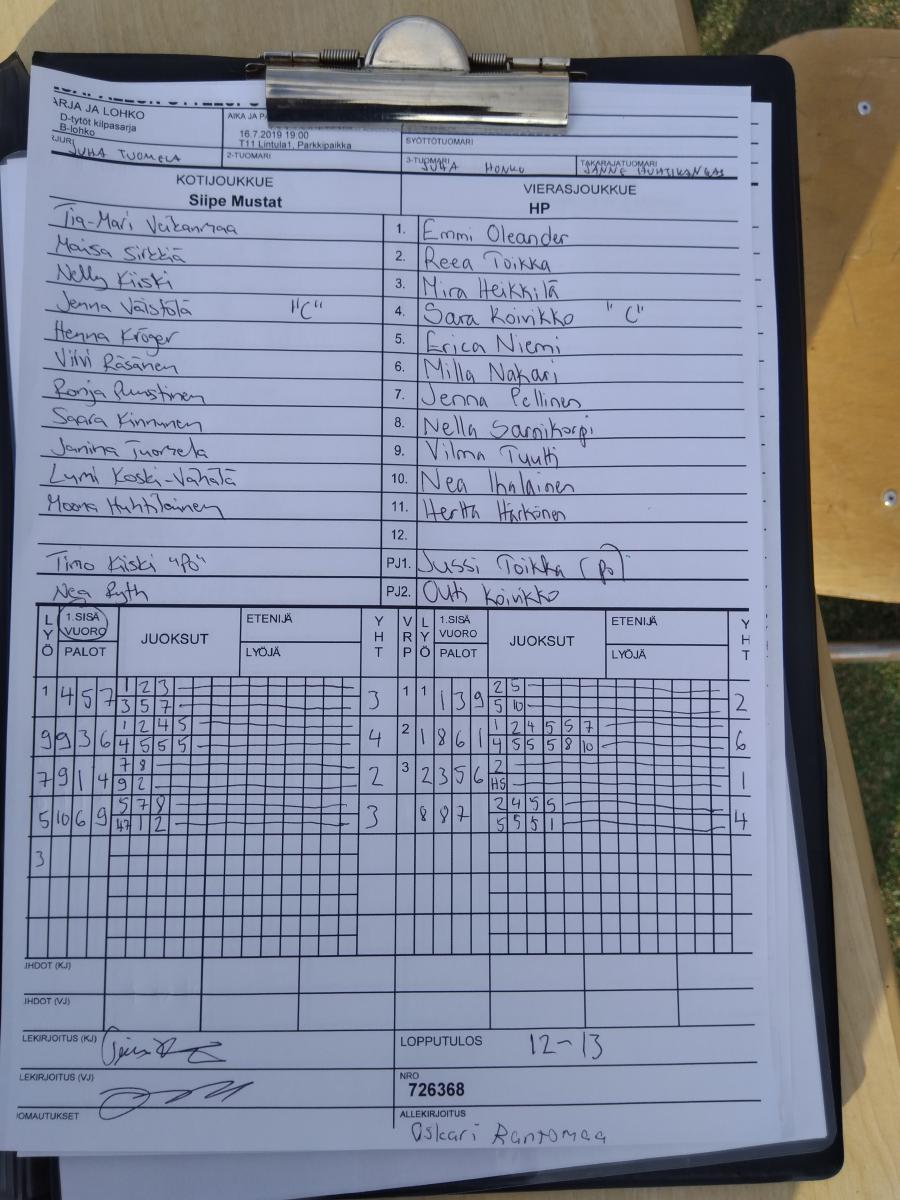 ARJA JA LOHKO
D-tytöt kilpasarja
B-lohko
AIKA JA PA
16.7.2019 19:00
T11 Lintula1, Parkkipaikka
SYÖTTÖTUOMARI
JUHA TUOMELA
2-TUOMARI
3-TUOMARI
JUHA HONKO
TAKARAJATUOMARI
JANNE HUHTIKANGAS
KOTIJOUKKUE
Siipe Mustat
VIERASJOUKKUE
HP
Tia-Mari Veikanmaa 1. Emmi Oleander
Maisa Sirkkiä 2. Reea Toikka
Nelly Kiiski 3. Mira Heikkilä
Jenna Väistölä "C" 4. Sara Koivikko "C"
Henna Kröger 5. Erica Niemi
Viivi Räsänen 6. Milla Nakari
Ronja Puustinen 7. Jenna Pellinen
Saara Kinnunen 8. Nella Sarnikorpi
Janina Tuomela 9. Vilma Tuutti
Lumi Koski-Vähälä 10. Nea Ihalainen
Moona Huhtilainen 11. Hertta Härkönen
12.
Timo Kiiski "PÖ" PJ1. Jussi Toikka (pö)
Nea Ryth PJ2. Outi Koivikko
LYÖ 1.SISÄ VUORO PALOT JUOKSUT ETENIJÄ LYÖJÄ YHT VRP LYÖ 1.SISÄ VUORO PALOT JUOKSUT ETENIJÄ LYÖJÄ YHT
1 4 5 7 1 2 3 3 1 1 1 3 9 2 5 2
3 5 7 5 10
9 9 3 6 1 2 4 5 4 2 1 8 6 1 1 2 4 5 5 7 6
4 5 5 5 4 5 5 5 8 10
7 9 1 4 7 8 2 3 2 3 5 6 2 1
9 2 HS
5 10 6 9 5 7 8 3 8 8 7 2 4 5 5 4
47 1 2 5 5 5 1
3
IHDOT (KJ)
IHDOT (VJ)
LEKIRJOITUS (KJ)
LOPPUTULOS 12-13
LEKIRJOITUS (VJ)
NRO
726368
OMAUTUKSET
ALLEKIRJOITUS
Oskari Rantomaa